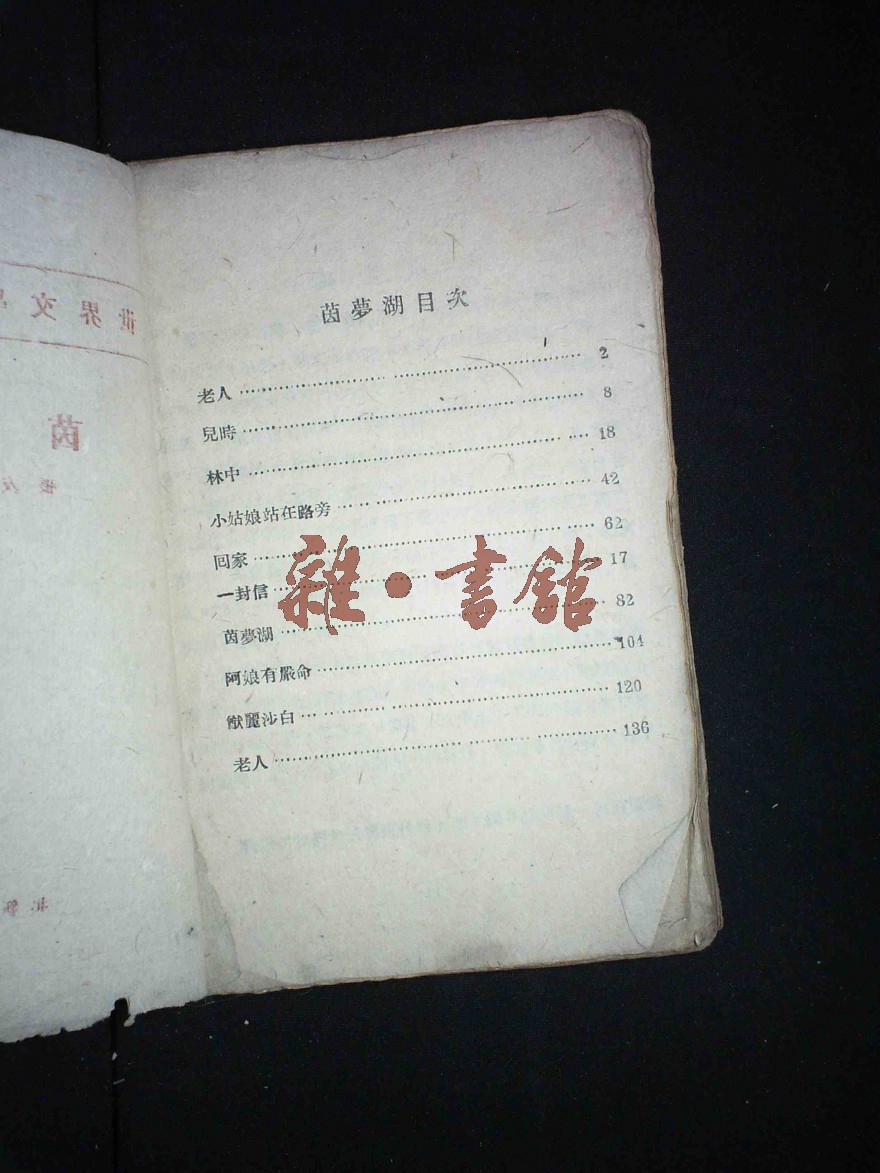 世界文學
茵
茵夢湖目次
老人………………………………2
兒時………………………………8
林中………………………………18
小姑娘站在路旁………………………………42
回家………………………………62
一封信………………………………17
茵夢湖………………………………82
阿娘有嚴命………………………………104
獣麗沙白………………………………120
老人………………………………136
雜·書館